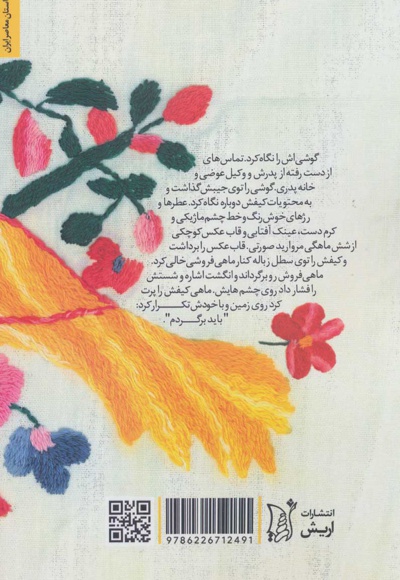 داستان معاصر ایران
گوشی‌اش را نگاه کرد. تماس‌های
از دست رفته از پدرش و وکیل عوضی و
خانه پدری. گوشی را توی جیبش گذاشت و
به محتویات کیفش دوباره نگاه کرد. عطرها و
رژهای خوش‌رنگ و خط چشم ماژیکی و
کرم دست، عینک آفتابی و قاب عکس کوچکی
از شش ماهگی مروارید صورتی. قاب عکس را برداشت
و کیفش را توی سطل زباله کنار ماهی‌فروشی خالی کرد.
ماهی‌فروش رو برگرداند و انگشت اشاره و شستش
را فشار داد روی چشم‌هایش. ماهی کیفش را پرت
کرد روی زمین و با خودش تکـــرار کرد:
"باید برگـــردم".
انتشارات
اریش
9786226712491